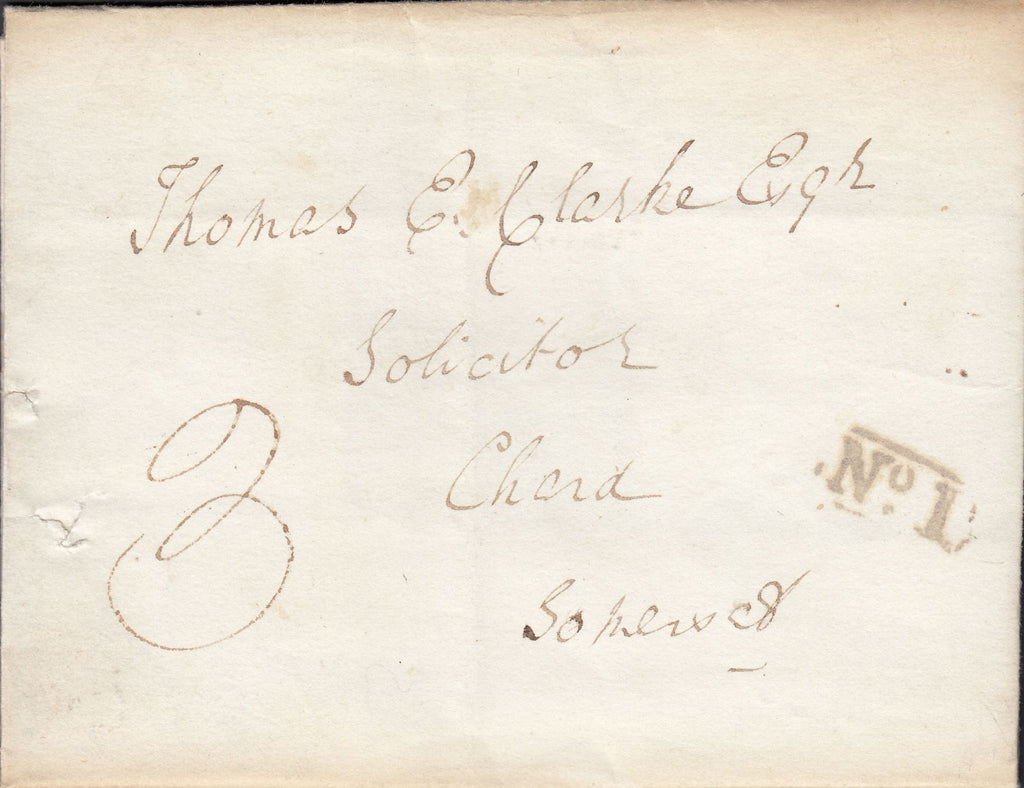 Thomas E. Clarke Esqr
Solicitor
Chard
Somerset
3
No 1